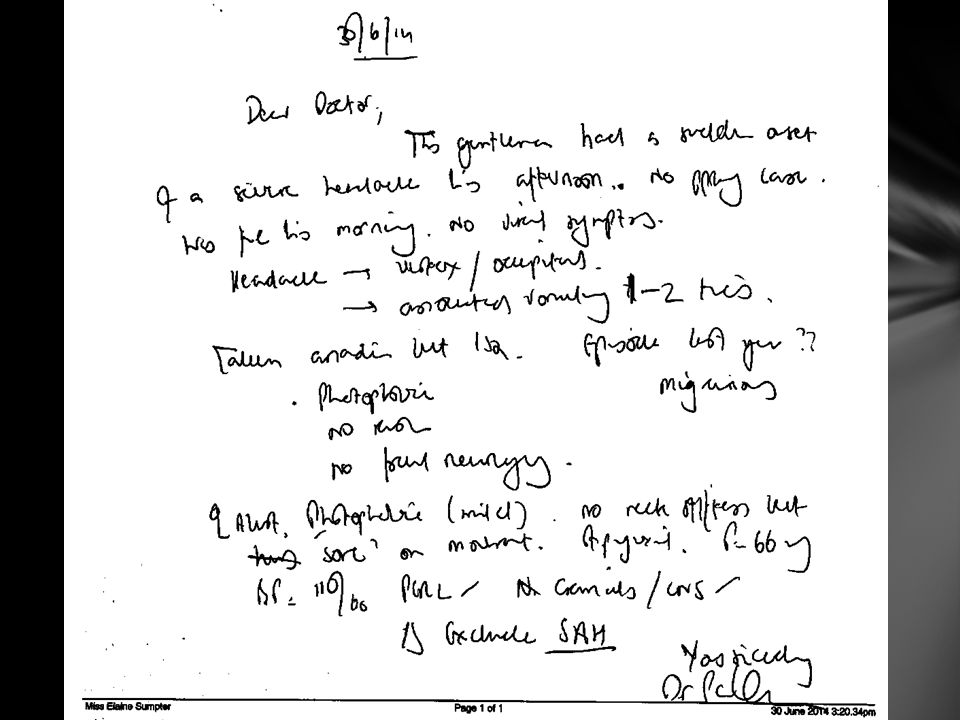 30/6/14
Dear Doctor,
This gentleman had a sudden onset
of a severe headache this afternoon. No cause.
Was fine this morning. No viral symptoms.
Headache → vertex / occipital.
→ associated vomiting 1-2 times.
Taken anadin but Episode last year ??
Photophobic Migraines
no rash
no focal neurology.
Alert. Photophobic (mild). no neck stiffness but
"sore" on movement. Apyrexial. P= 66
BP= 110/60 PERL ✓ cranials / CNS ✓
Exclude SAH
Yours sincerely
Dr
Miss Elaine Sumpter Page 1 of 1 30 June 2014 3:20.34pm